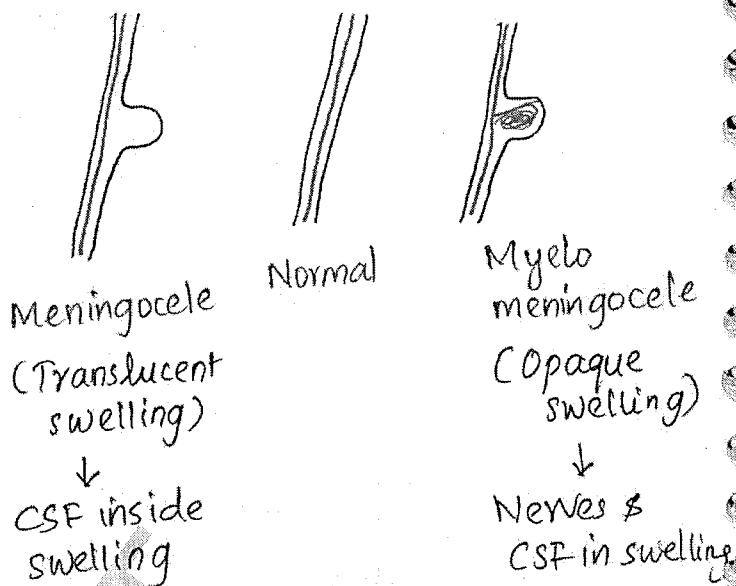 Meningocele
(Translucent
swelling)
↓
CSF inside
swelling
Normal
Myelo
meningocele
(Opaque
swelling)
↓
Nerves &
CSF in swelling